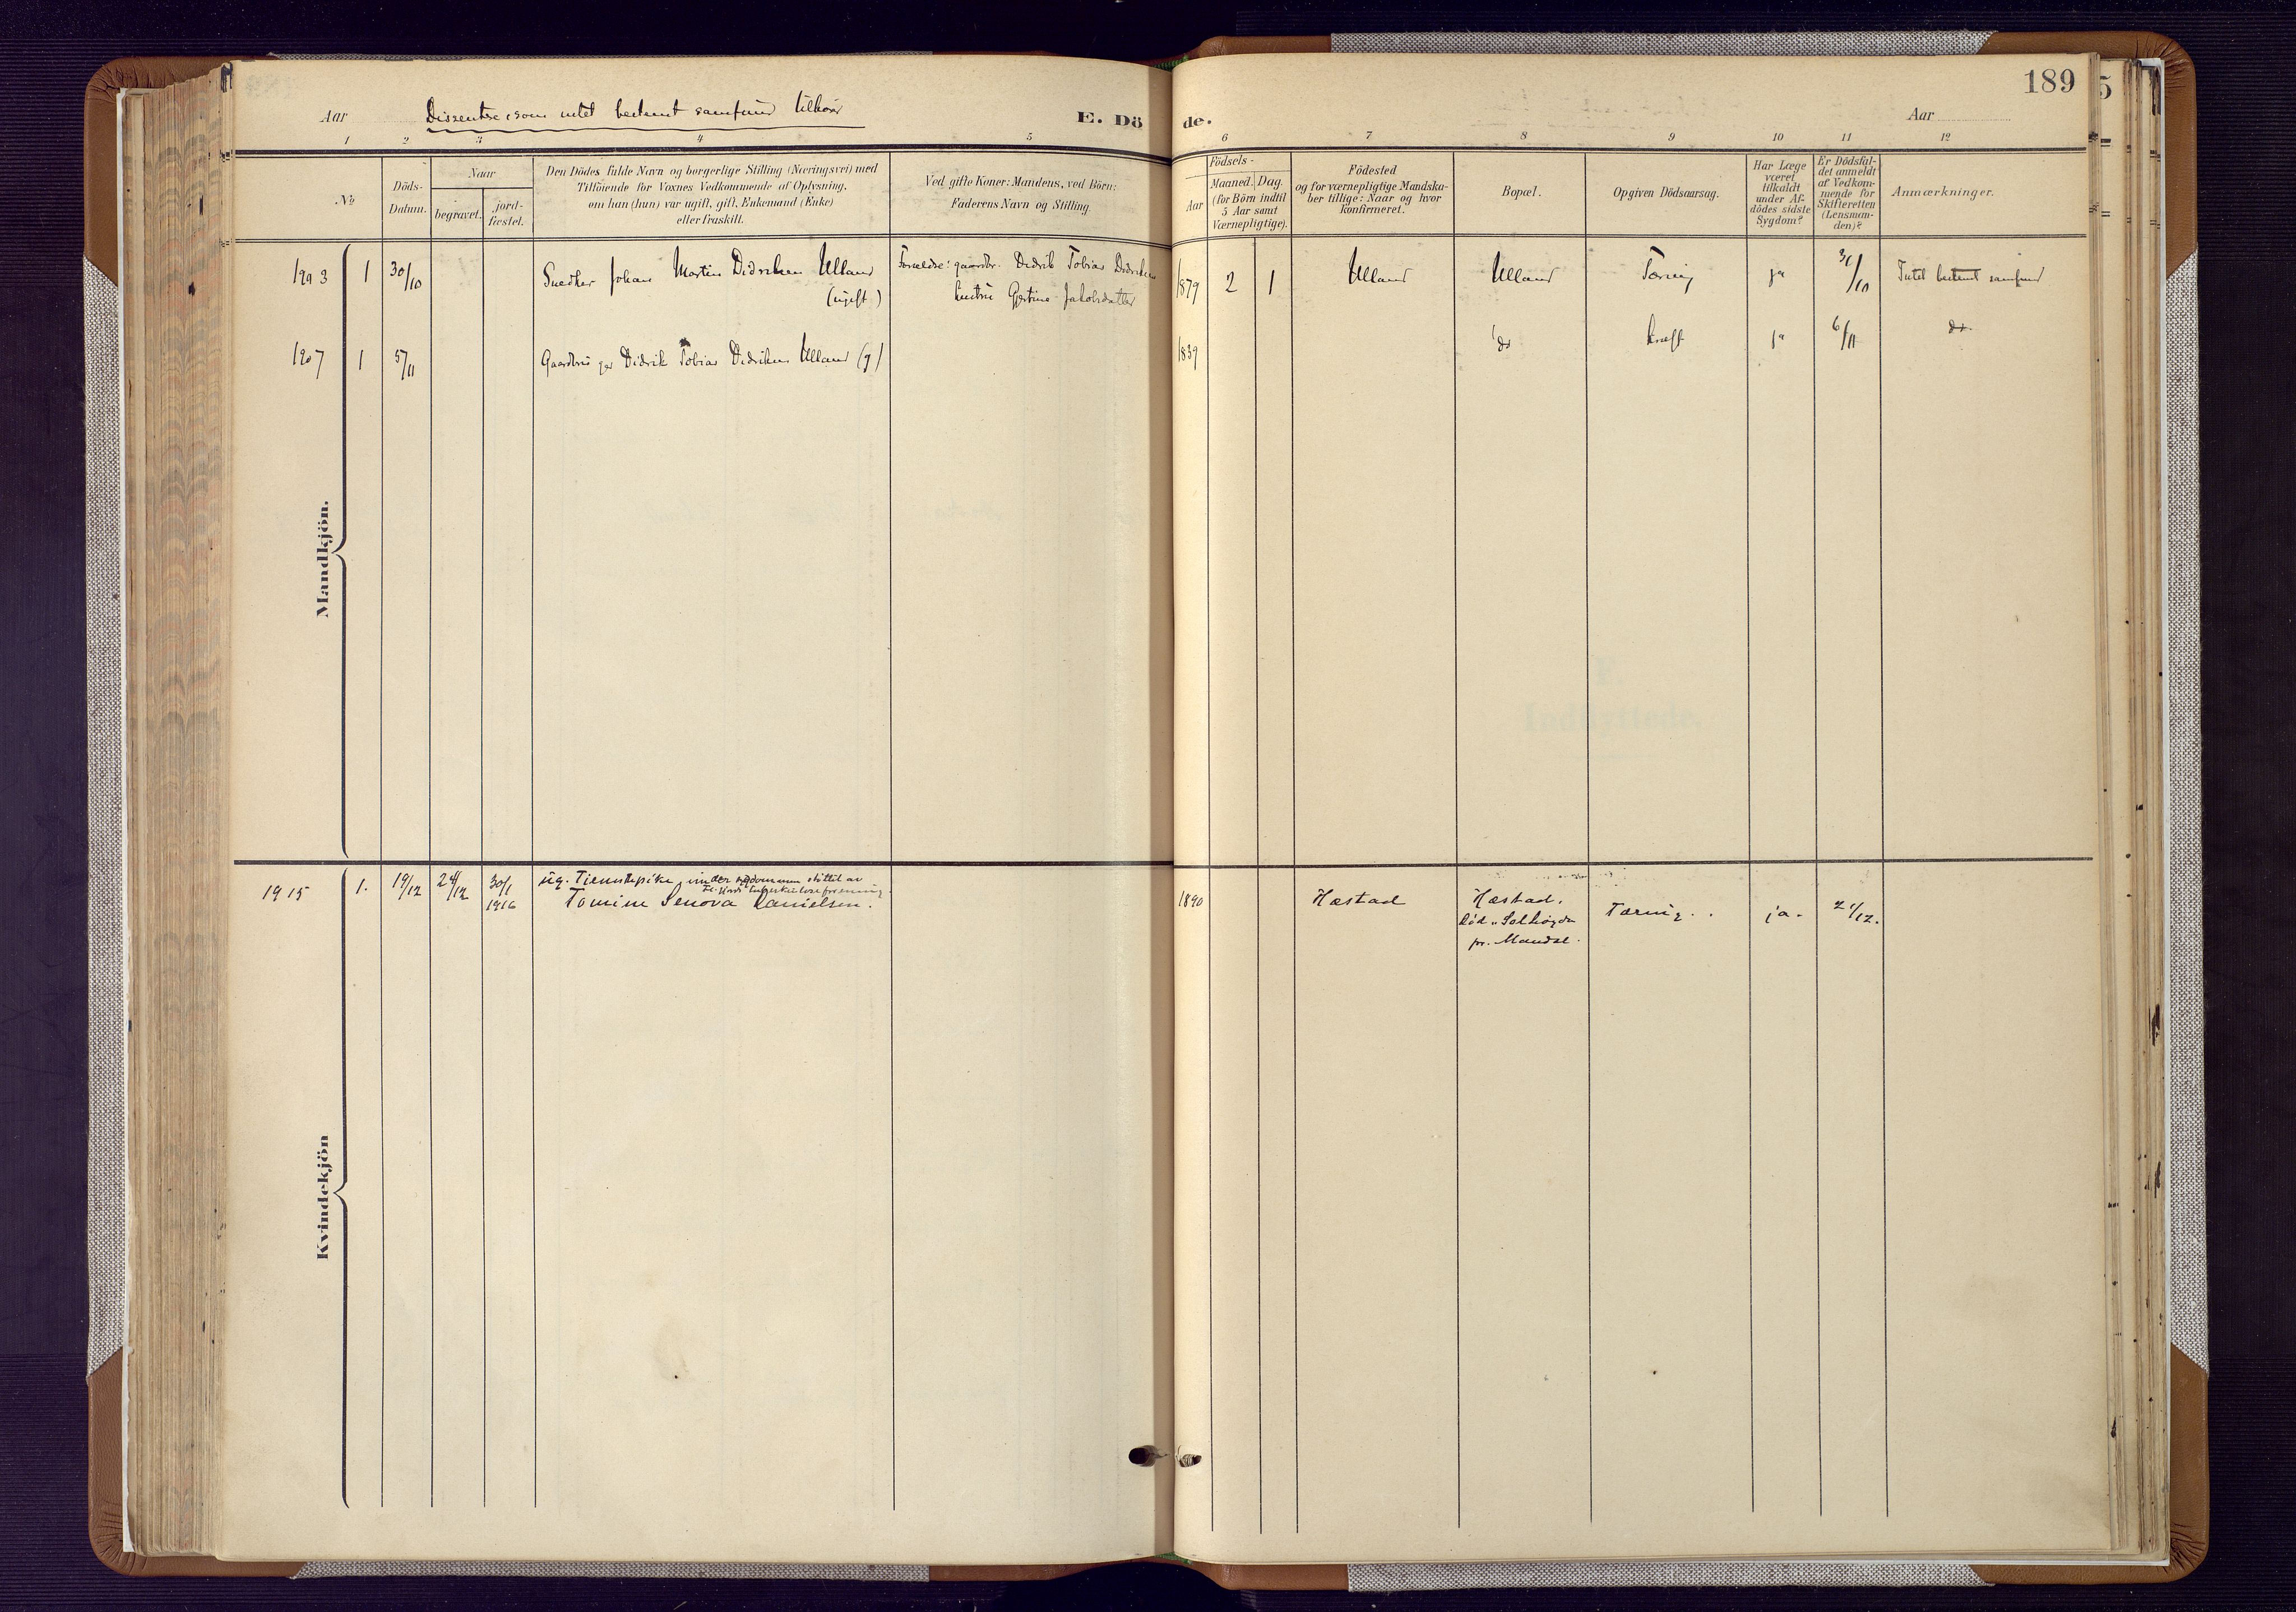 189
5
Aar
Dissentere som intet bestemt samfund tilhør
E. Dö
de.
Aar
1
2
3
4
5
6
7
8
9
10
11
12
No
Döds-
Datum.
Naar
begravet.
jord-
fæstet.
Den Dödes fulde Navn og borgerlige Stilling (Næringsvei) med
Tilföiende for Voxnes Vedkommende af Oplysning,
om han (hun) var ugift, gift, Enkemand (Enke)
eller fraskilt.
Ved gifte Koner: Mandens, ved Börn:
Faderens Navn og Stilling.
Födsels-
Aar
Maaned.
Dag.
(for Börn indtil
5 Aar samt
Værnepligtige).
Födested
og for værnepligtige Mandska-
ber tillige: Naar og hvor
konfirmeret.
Bopæl.
Opgiven Dödsaarsag.
Har Læge
været
tilkaldt
under Af-
dödes sidste
Sygdom?
Er Dödsfal-
det anmeldt
af Vedkom-
mende for
Skifteretten
(Lensman-
den)?
Anmærkninger.
Mandkjön.
1903
1
30/10
Snedker Johan Martin Didriksen Ulland
(ugift)
Forældre: gaardbr. Didrik Tobias Didriksen
hustru Gjertine Jakobsdatter
1879
2
1
Ulland
Ulland
Tæring
ja
31/10
Intet bestemt samfund
1907
1
5/11
Didrik Tobias Didriksen Ulland (g)
1839
do
kræft
ja
6/11
do.
Kvindekjön
1915
1.
19/12
24/12
30/1
1916
ug. Tjenestepike, under sygdommen støttet av
tuberkuloseforening.
Tomine Senova Danielsen.
1890
Hæstad
Hæstad.
Død "Solhøgda
pr. Mandal.
Tæring.
ja.
21/12.